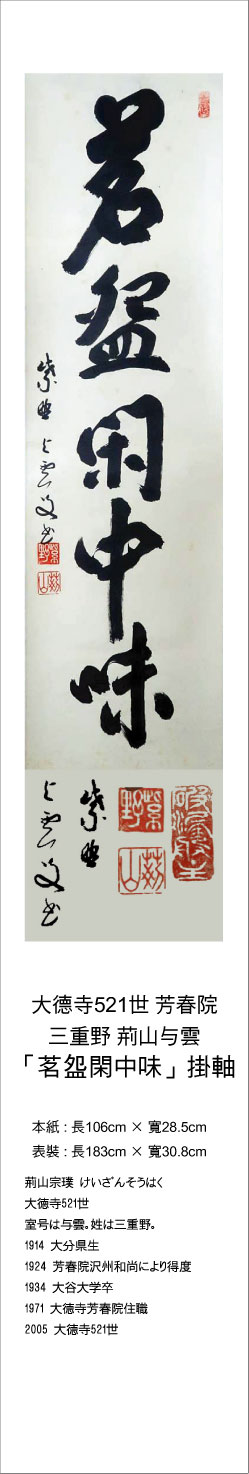 茗盌閑中味
紫野 与雲叟書
紫野
荊山
与雲叟書
紫野
紫野
荊山
大德寺521世 芳春院
三重野 荊山与雲
「茗盌閑中味」掛軸
本紙：長106cm × 寬28.5cm
表裝：長183cm × 寬30.8cm
荊山宗璞 けいざんそうはく
大徳寺521世
室号は与雲。姓は三重野。
1914 大分県生
1924 芳春院沢州和尚により得度
1934 大谷大学卒
1971 大徳寺芳春院住職
2005 大徳寺521世